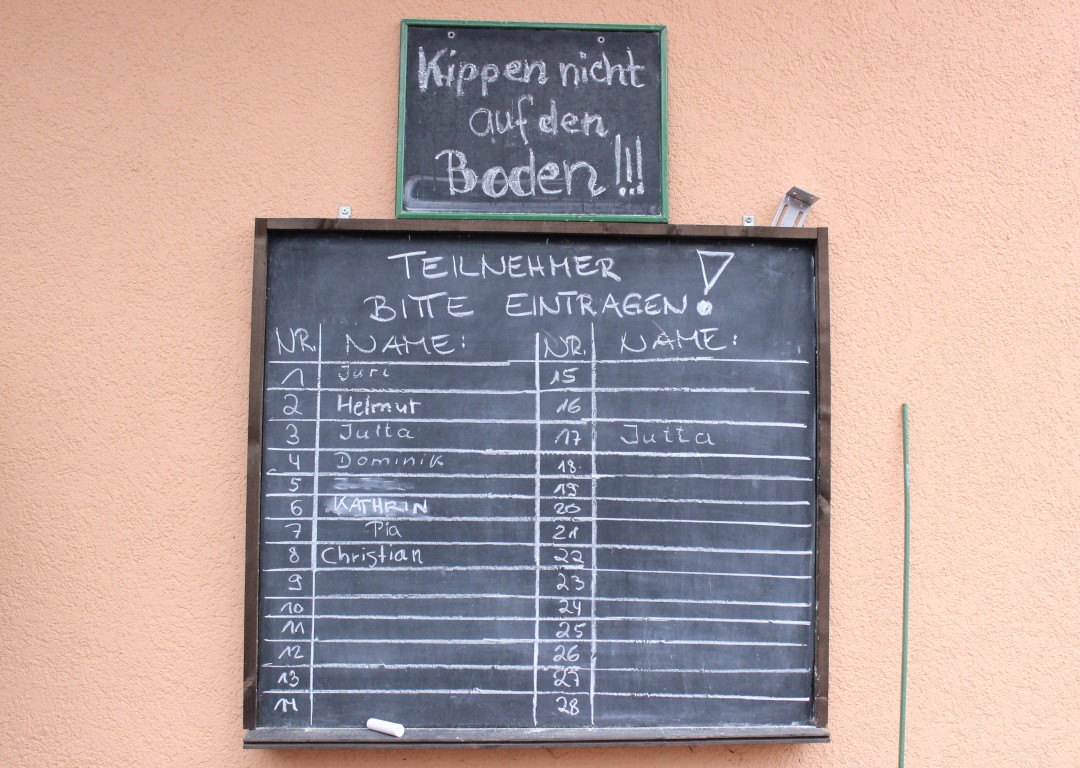 Kippen nicht
auf den
Boden!!!
TEILNEHMER
BITTE EINTRAGEN!
NR. NAME: NR. NAME:
1 Juri 15
2 Helmut 16
3 Jutta 17 Jutta
4 Dominik 18
5 19
6 KATHRIN 20
7 Pia 21
8 Christian 22
9 23
10 24
11 25
12 26
13 27
14 28